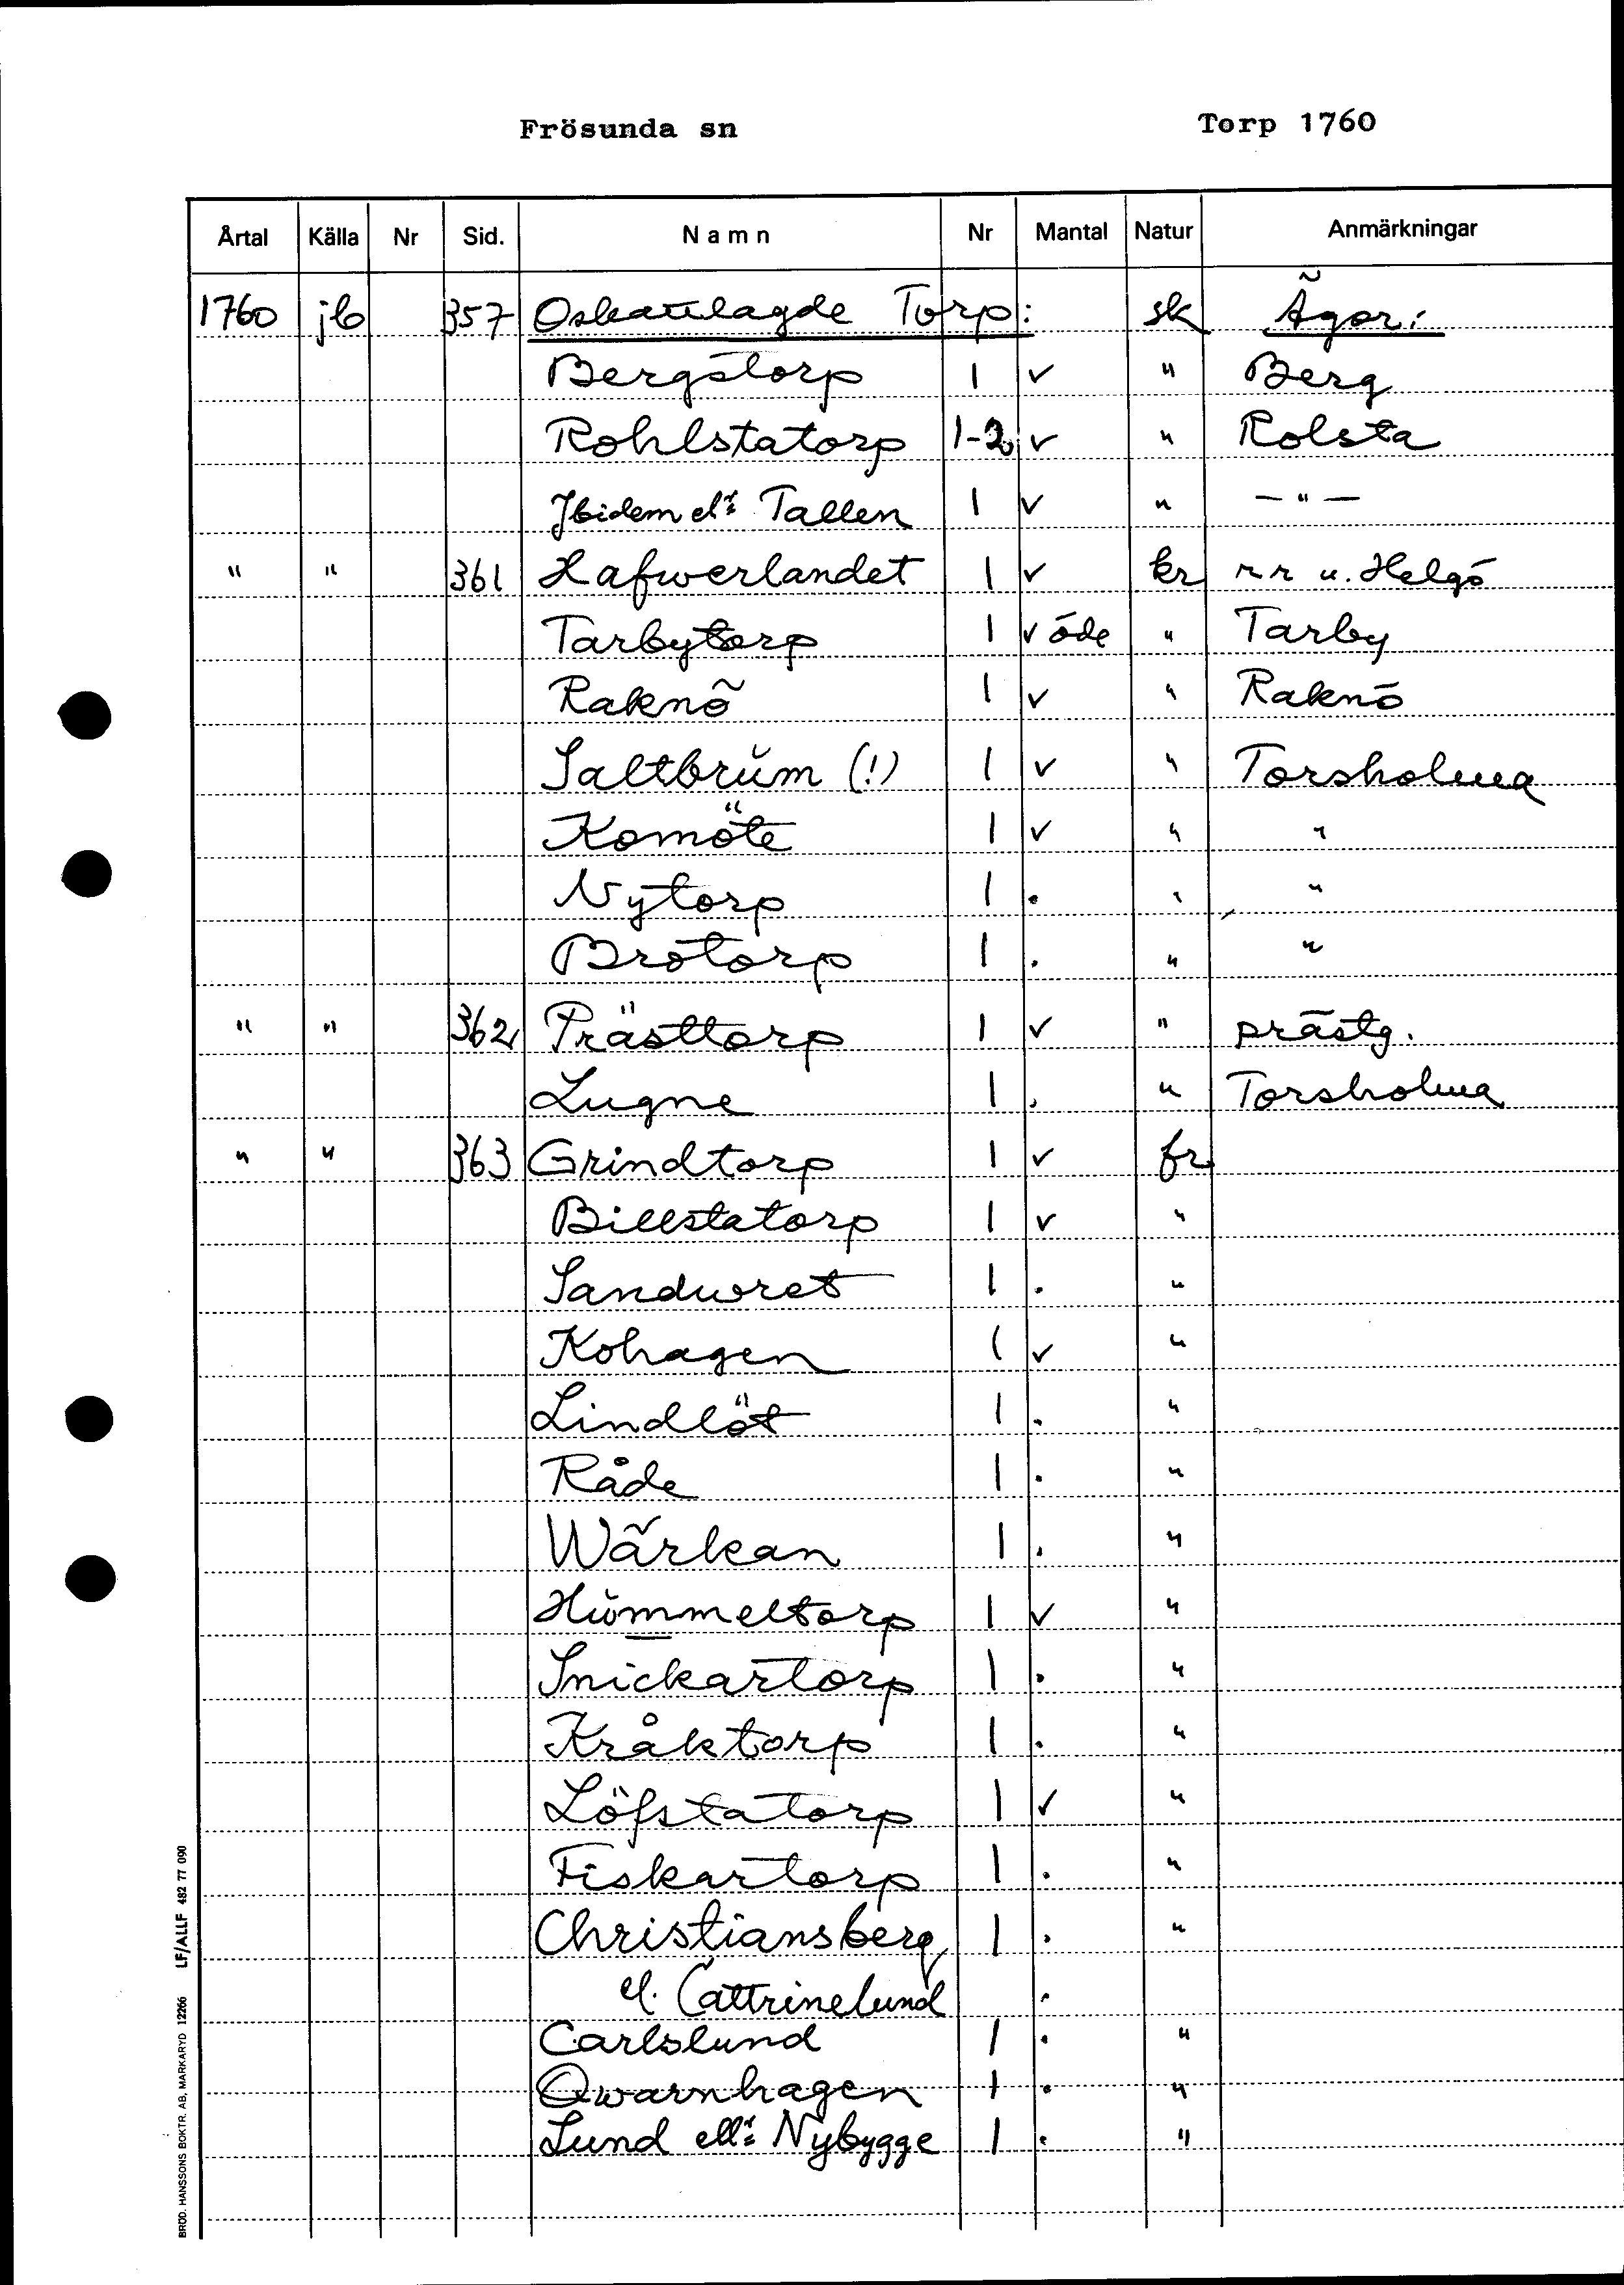 Frösunda sn Torp 1760
Årtal Källa Nr Sid. Namn Nr Mantal Natur Anmärkningar
1760 jb 357 Oskattlagde Torp: sk Ägor:
Bergstorp 1 v " Berg
Rohlstatorp 1-2 v " Rolsta
Jbidem elr Tallen 1 v " — " —
" " 361 Hafwerlandet 1 v kr rr u. Helgö
Tarbytorp 1 v öde " Tarby
Raknö 1 v " Raknö
Saltbrŭm (!) 1 v " Torsholma
Komöte 1 v " "
Nytorp 1 . " "
Brotorp 1 . " "
" " 362 Prästtorp 1 v " prästg.
Lugne 1 . " Torsholma
" " 363 Grindtorp 1 v fr
Billstatorp 1 v "
Sandwret 1 . "
Kohagen 1 v "
Lindlöt 1 . "
Råde 1 . "
Wärkan 1 . "
Hŭmmeltorp 1 v "
Snickartorp 1 . "
Kråktorp 1 . "
Löfstatorp 1 v "
Fiskartorp 1 . "
Christiansberg 1 . "
el. Cattrinelund .
Carlslund 1 . "
Qwarnhagen 1 . "
Lund ellr Nybygge 1 . "
BRÖD. HANSSONS BOKTR. AB, MARKARYD 12266 LF/ALLF 482 77 090